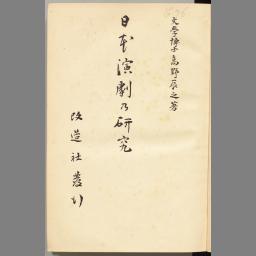 文學博士高野辰之著
日本演劇乃研究
改造社發行